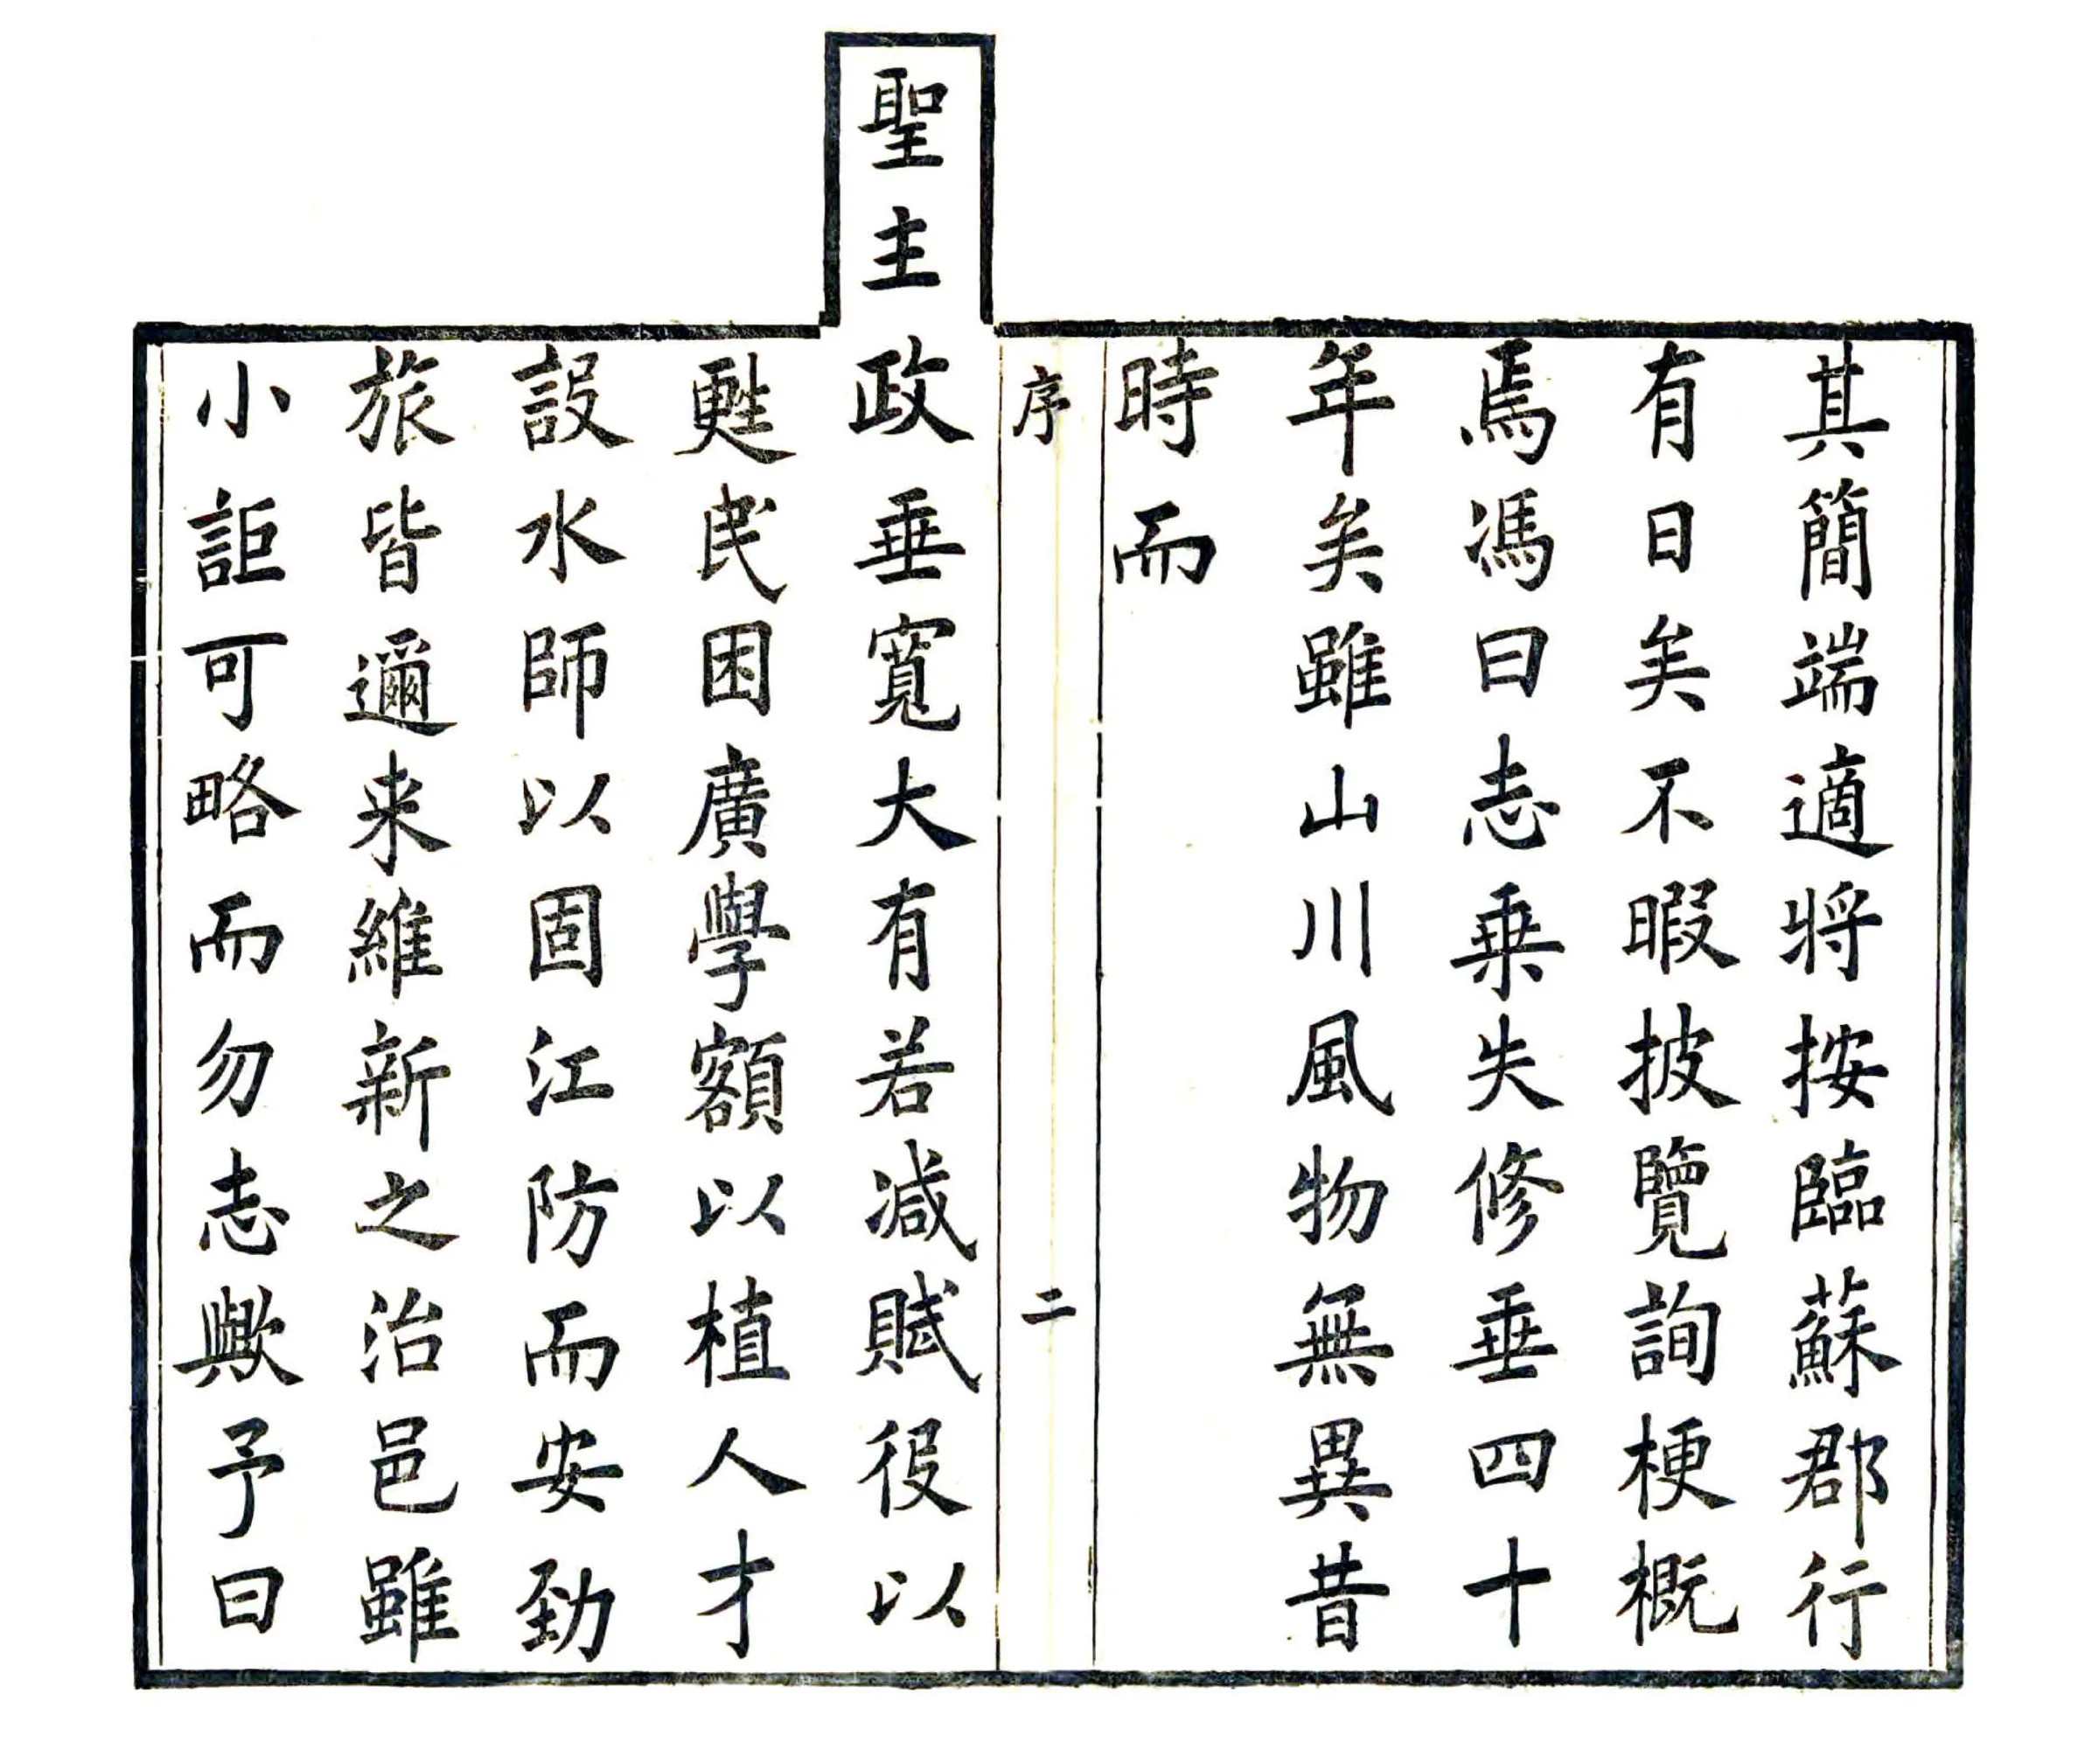 其簡端適將按臨蘇郡行
有日矣不暇披覽詢梗概
焉馮曰志乘失修垂四十
年矣雖山川風物無異昔
時而
序
二
聖主政垂寬大有若减賦役以
甦民困廣學額以植人才
設水師以固江防而安勁
旅皆邇来維新之治邑雖
小詎可略而勿志歟予曰